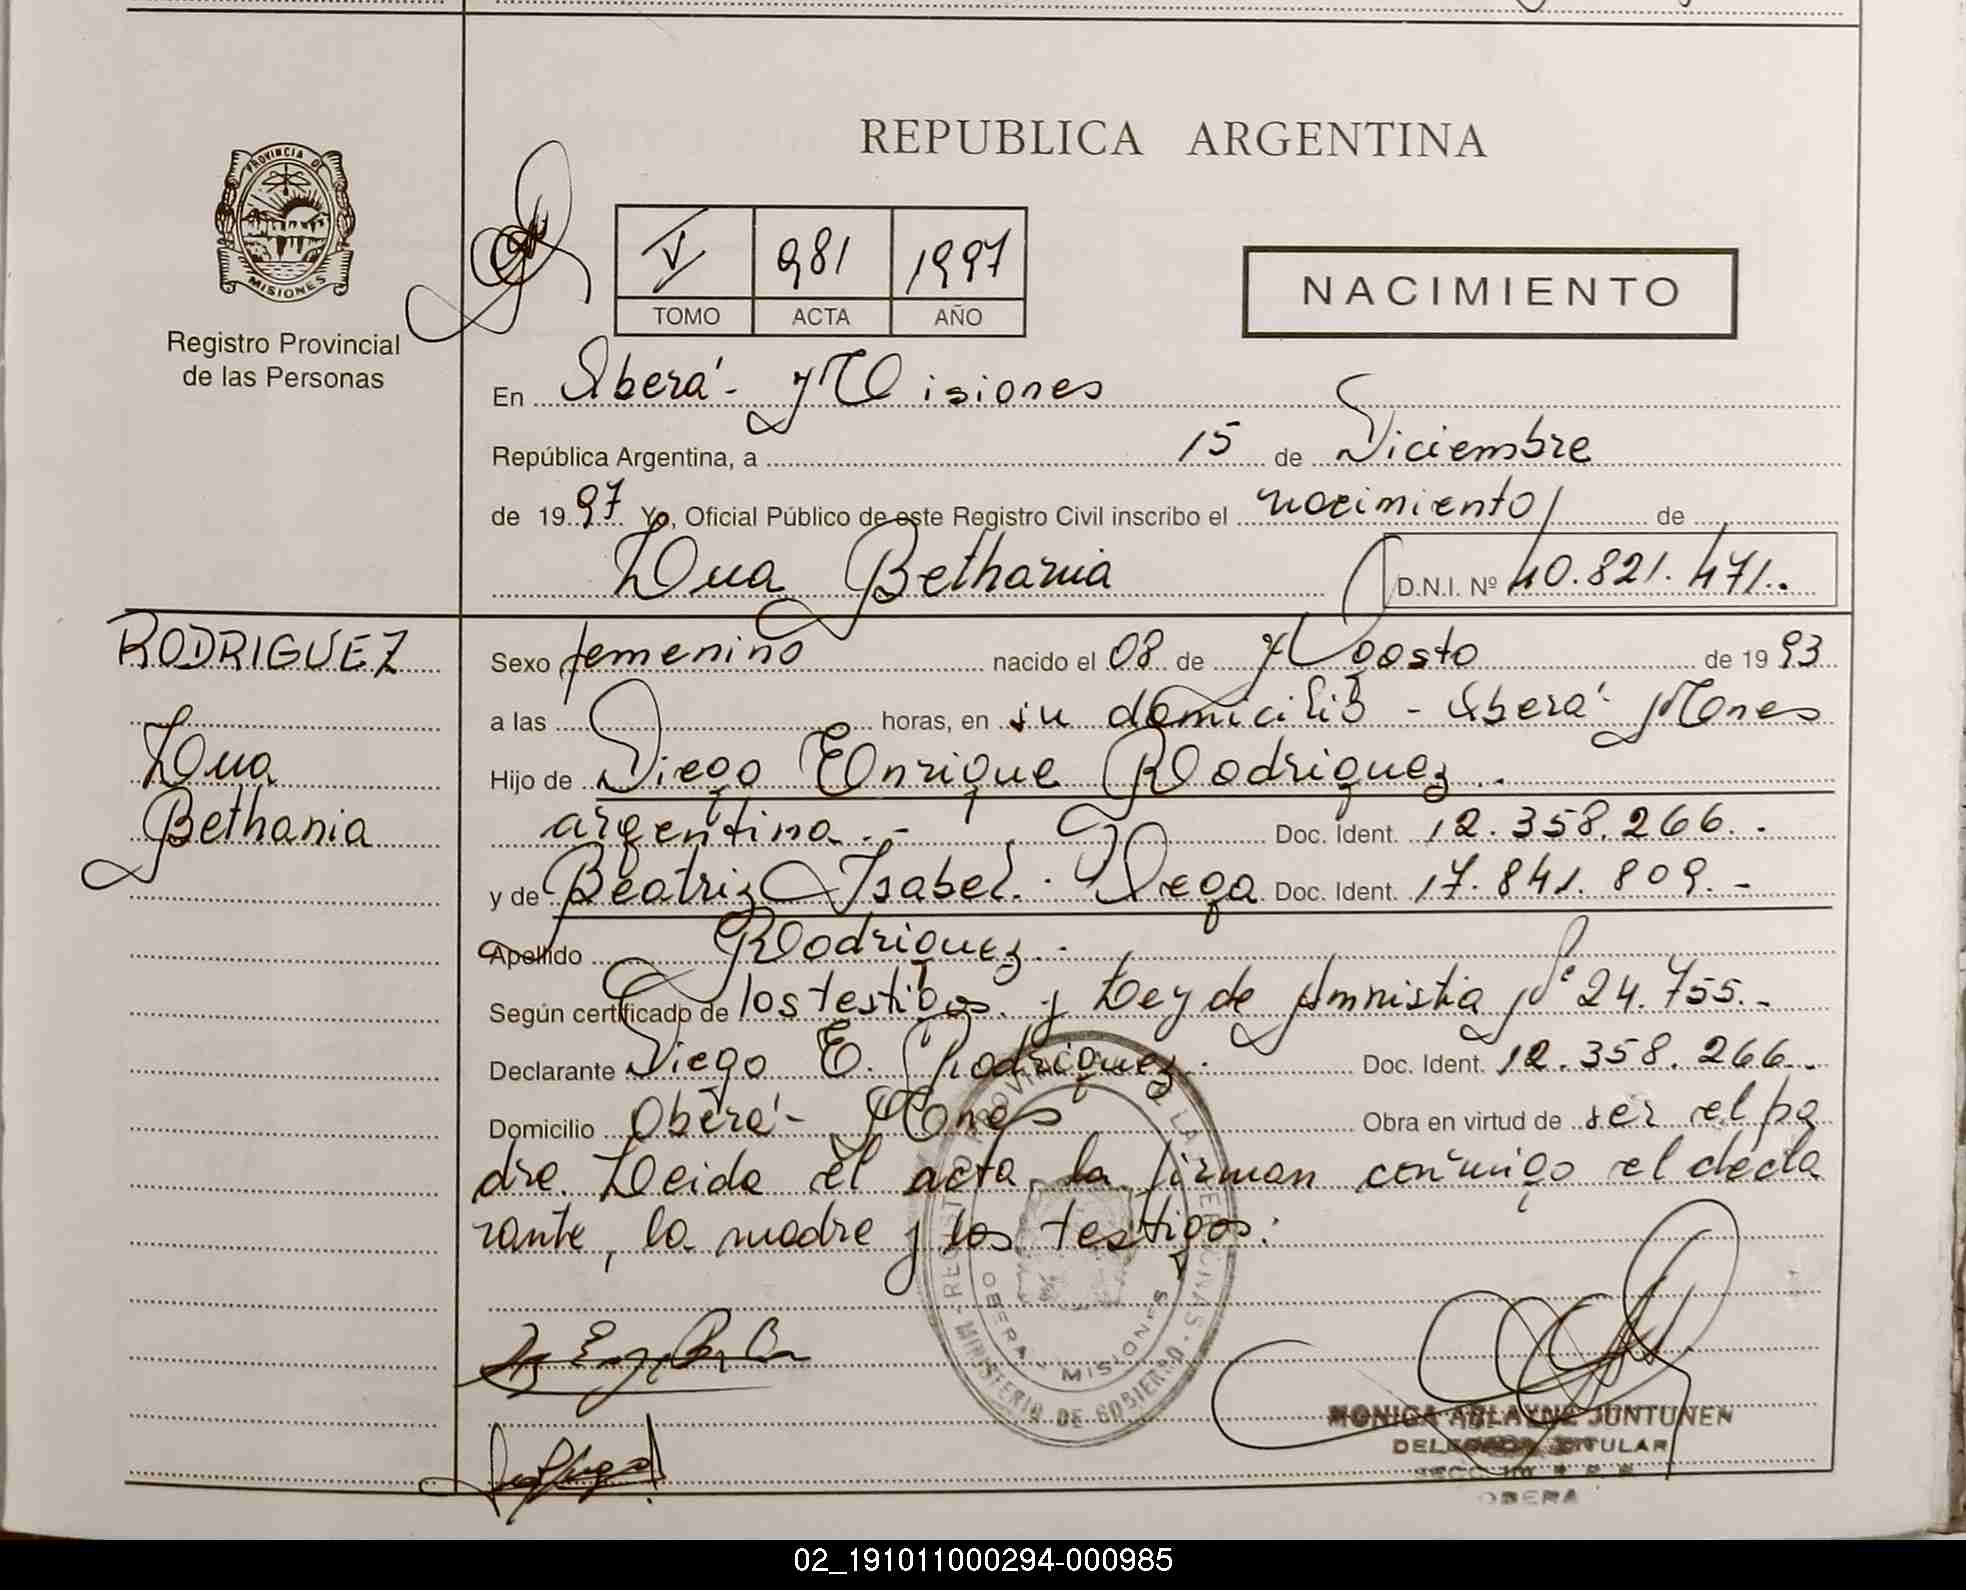 REPUBLICA ARGENTINA
PROVINCIA DE
MISIONES
Registro Provincial
de las Personas
V 981 1997
TOMO ACTA AÑO
NACIMIENTO
En Oberá - Misiones
República Argentina, a 15 de Diciembre
de 1997 Yo, Oficial Público de este Registro Civil inscribo el nacimiento de
Lua Bethania D.N.I. Nº 40.821.471.-
RODRIGUEZ
Lua
Bethania
Sexo femenino nacido el 08 de Agosto de 1993
a las horas, en su domicilio - Oberá Mnes
Hijo de Diego Enrique Rodriguez.
argentina.- Doc. Ident. 12.358.266.-
y de Beatriz Isabel Vega Doc. Ident. 17.841.809.-
Apellido Rodriguez.-
Según certificado de los testigos y Ley de Amnistia Nº 24.755.-
Declarante Diego E. Rodriguez. Doc. Ident. 12.358.266.-
Domicilio Oberá - Mnes Obra en virtud de ser el pa
dre. Leida el acta, la firman conmigo el decla
rante, la madre y los testigos:
REGISTRO PROVINCIAL DE LAS PERSONAS
MINISTERIO DE GOBIERNO
OBERA MISIONES
MONICA JUNTUNEN
DELEGADA TITULAR
OBERA
02_191011000294-000985